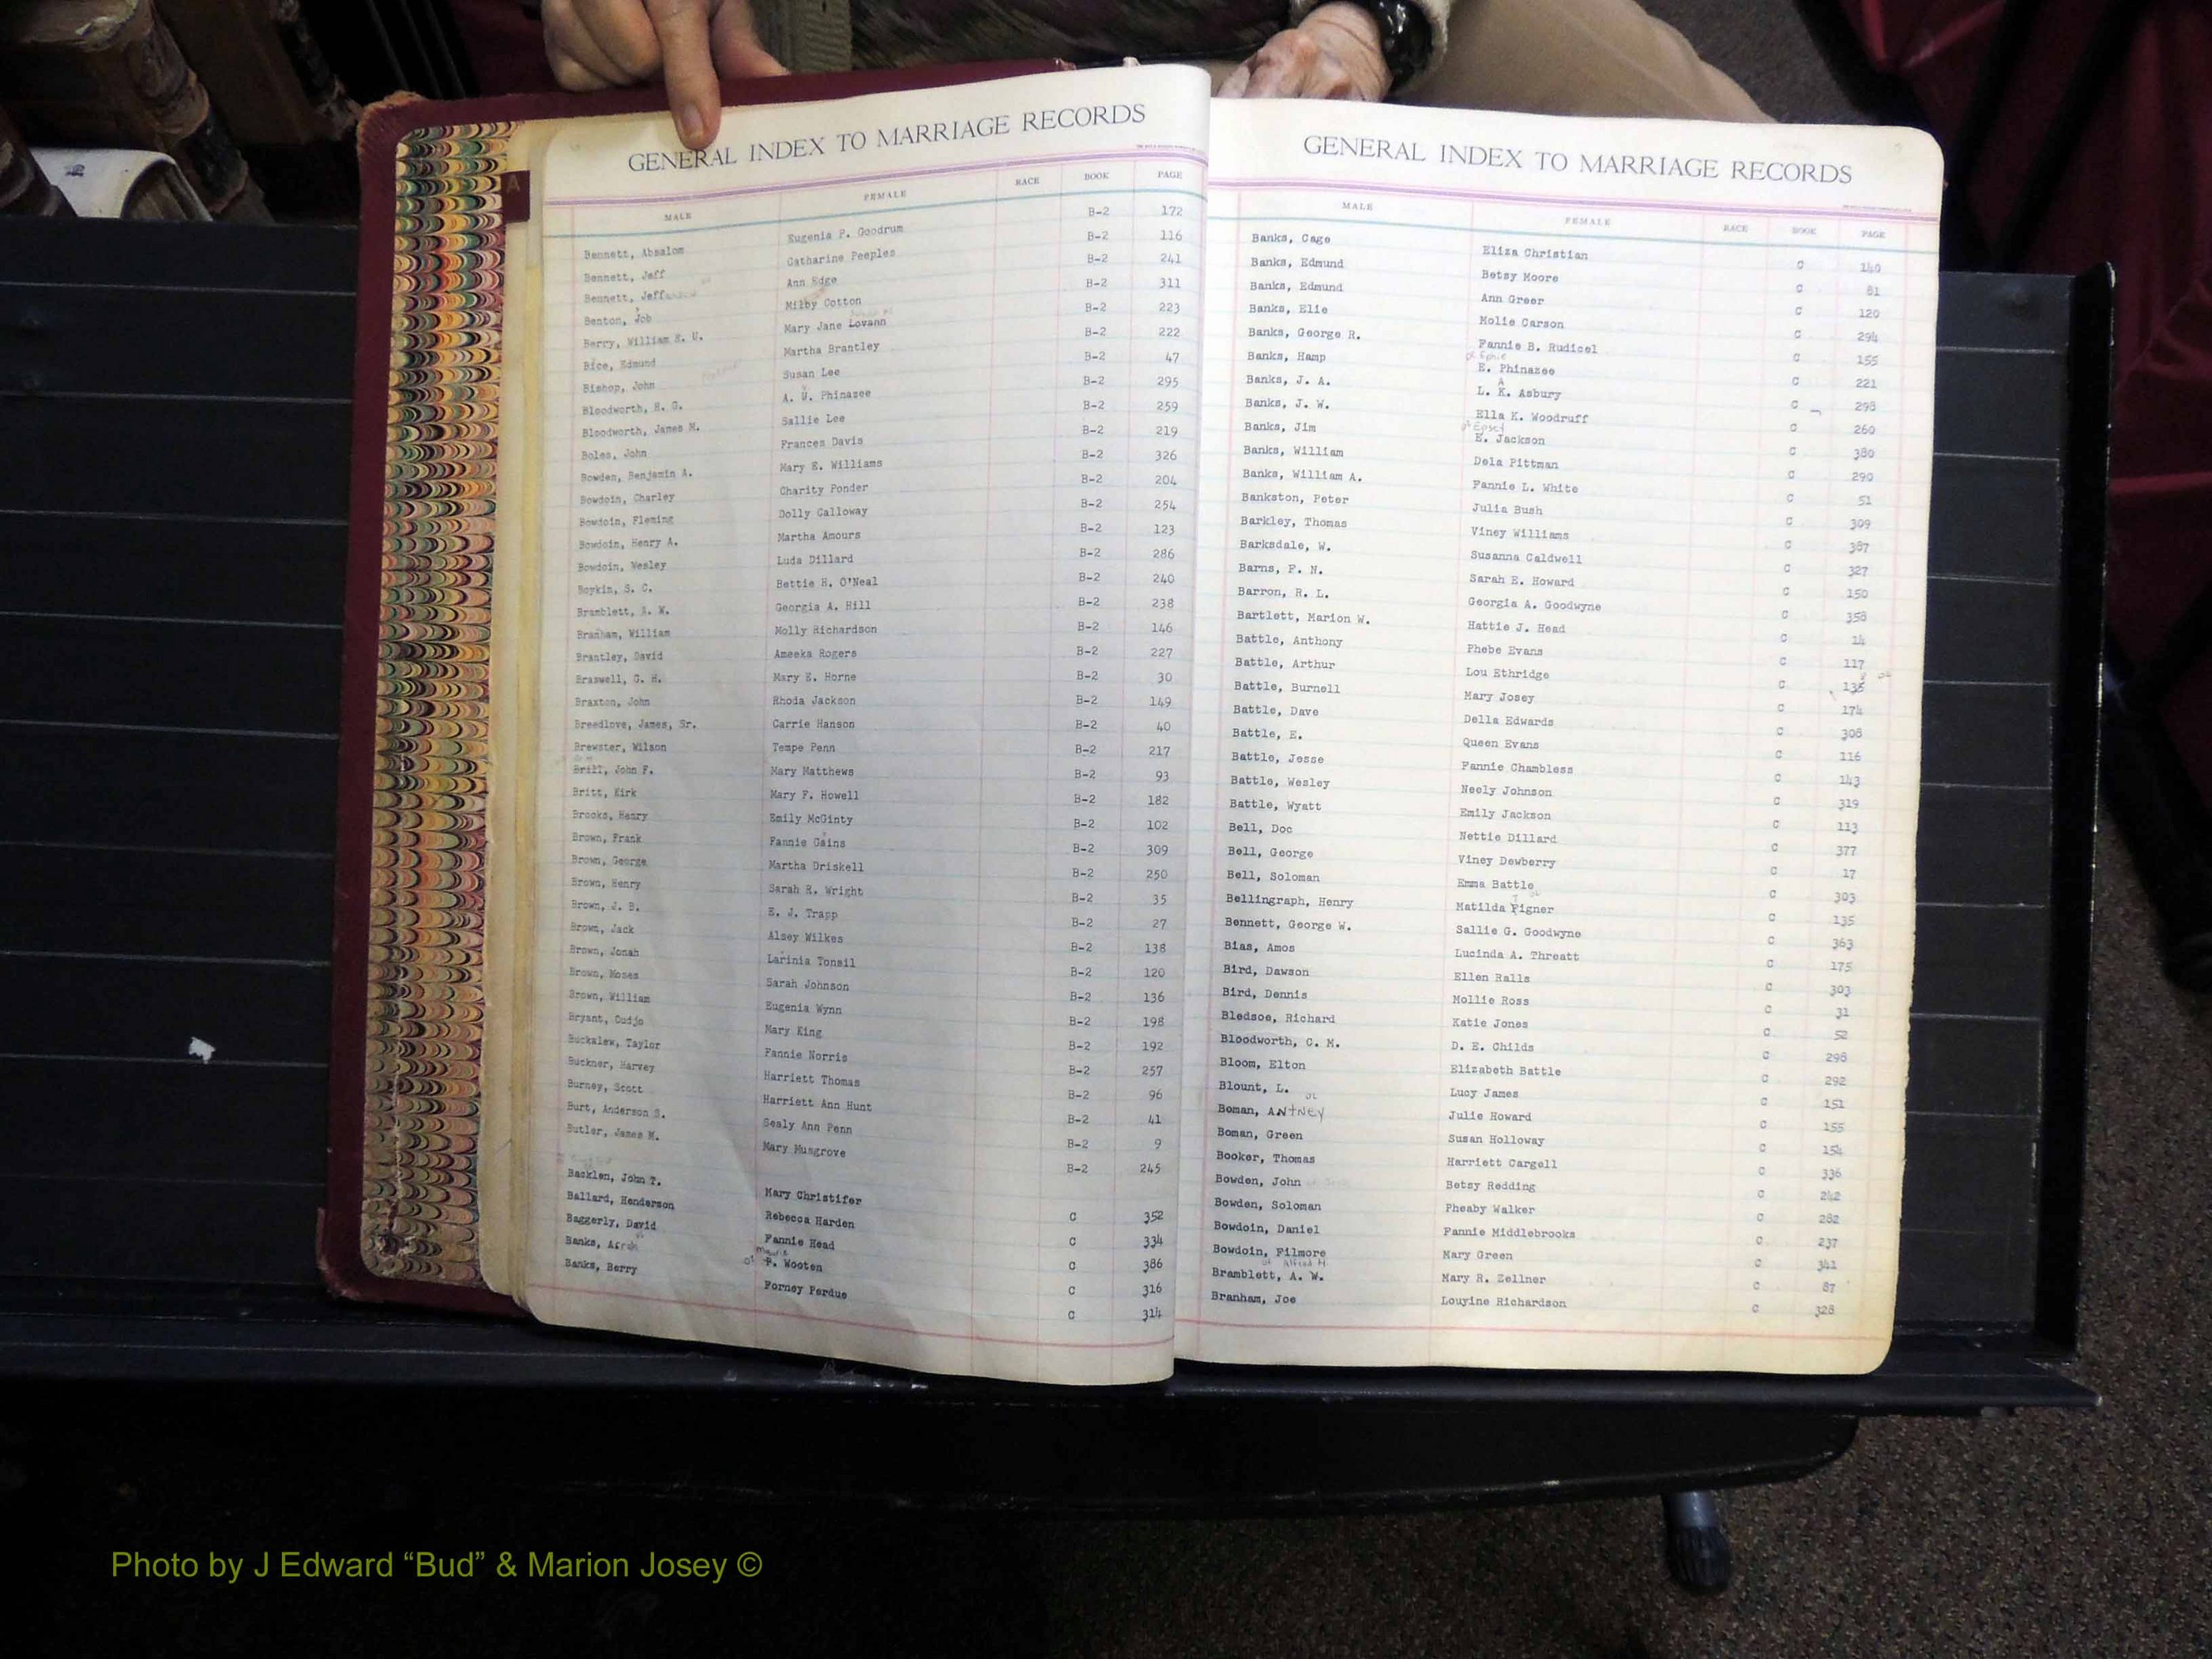 GENERAL INDEX TO MARRIAGE RECORDS
MALE FEMALE RACE BOOK PAGE
Bennett, Absalom Eugenia P. Goodrum B-2 172
Bennett, Jeff Catharine Peeples B-2 116
Bennett, Jeff Ann Edge B-2 241
Benton, Job Milby Cotton B-2 311
Berry, William E. U. Mary Jane Lovann B-2 223
Rice, Edmund Martha Brantley B-2 222
Bishop, John Susan Lee B-2 47
Bloodworth, H. G. A. U. Phinazee B-2 295
Bloodworth, James M. Sallie Lee B-2 259
Boles, John Frances Davis B-2 219
Bowden, Benjamin A. Mary E. Williams B-2 326
Bowdoin, Charley Charity Ponder B-2 204
Bowdoin, Fleming Dolly Calloway B-2 254
Bowdoin, Henry A. Martha Amours B-2 123
Bowdoin, Wesley Luda Dillard B-2 286
Boykin, S. C. Bettie H. O'Neal B-2 240
Bramblett, A. W. Georgia A. Hill B-2 238
Branham, William Molly Richardson B-2 146
Brantley, David Ameeka Rogers B-2 227
Braswell, G. H. Mary E. Horne B-2 30
Braxton, John Rhoda Jackson B-2 149
Breedlove, James, Sr. Carrie Hanson B-2 40
Brewster, Wilson Tempe Penn B-2 217
Brill, John F. Mary Matthews B-2 93
Britt, Kirk Mary F. Howell B-2 182
Brooks, Henry Emily McGinty B-2 102
Brown, Frank Fannie Gains B-2 309
Brown, George Martha Driskell B-2 250
Brown, Henry Sarah R. Wright B-2 35
Brown, J. B. E. J. Trapp B-2 27
Brown, Jack Alsey Wilkes B-2 138
Brown, Jonah Larinia Tonsil B-2 120
Brown, Moses Sarah Johnson B-2 136
Brown, William Eugenia Wynn B-2 198
Bryant, Cudjo Mary King B-2 192
Buckalew, Taylor Fannie Norris B-2 257
Buckner, Harvey Harriett Thomas B-2 96
Burney, Scott Harriett Ann Hunt B-2 41
Burt, Anderson S. Sealy Ann Penn B-2 9
Butler, James M. Mary Musgrove B-2 245
Backlen, John T. Mary Christifer C 352
Ballard, Henderson Rebecca Harden C 334
Baggerly, David Fannie Head C 386
Banks, P. Wooten C 316
Banks, Berry Forney Perdue C 314
GENERAL INDEX TO MARRIAGE RECORDS
MALE FEMALE RACE BOOK PAGE
Banks, Cage Eliza Christian C 140
Banks, Edmund Betsy Moore C 81
Banks, Edmund Ann Greer C 120
Banks, Elie Molie Carson C 294
Banks, George R. Fannie B. Rudicel C 155
Banks, Hamp E. Phinazee C 221
Banks, J. A. L. K. Asbury C 298
Banks, J. W. Ella K. Woodruff C 260
Banks, Jim E. Jackson C 380
Banks, William Dela Pittman C 290
Banks, William A. Fannie L. White C 51
Bankston, Peter Julia Bush C 309
Barkley, Thomas Viney Williams C 387
Barksdale, W. Susanna Caldwell C 327
Barns, F. N. Sarah E. Howard C 150
Barron, R. L. Georgia A. Goodwyne C 358
Bartlett, Marion W. Hattie J. Head C 14
Battle, Anthony Phebe Evans C 117
Battle, Arthur Lou Ethridge C 135
Battle, Burnell Mary Josey C 174
Battle, Dave Della Edwards C 308
Battle, E. Queen Evans C 116
Battle, Jesse Fannie Chambless C 143
Battle, Wesley Neely Johnson C 319
Battle, Wyatt Emily Jackson C 113
Bell, Doc Nettie Dillard C 377
Bell, George Viney Dewberry C 17
Bell, Soloman Emma Battle C 303
Bellingraph, Henry Matilda Pigner C 135
Bennett, George W. Sallie G. Goodwyne C 363
Bias, Amos Lucinda A. Threatt C 175
Bird, Dawson Ellen Ralls C 303
Bird, Dennis Mollie Ross C 31
Bledsoe, Richard Katie Jones C 52
Bloodworth, C. M. D. E. Childs C 298
Bloom, Elton Elizabeth Battle C 292
Blount, L. Lucy James C 151
Boman, ANtNEy Julie Howard C 155
Boman, Green Susan Holloway C 154
Booker, Thomas Harriett Cargell C 336
Bowden, John Betsy Redding C 242
Bowden, Soloman Pheaby Walker C 282
Bowdoin, Daniel Fannie Middlebrooks C 237
Bowdoin, Filmore Mary Green C 341
Bramblett, A. W. Mary R. Zellner C 87
Branham, Joe Louvine Richardson C 328
Photo by J Edward “Bud” & Marion Josey ©